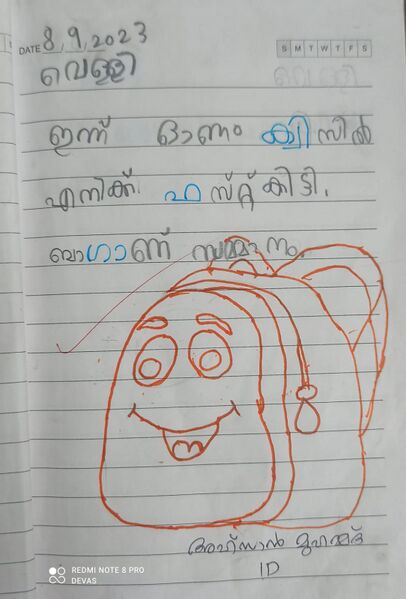 DATE 8,9,2023
S M T W T F S
വെള്ളി
ഇന്ന് ഓണം ക്വിസിൽ
എനിക്ക് ഫസ്റ്റ് കിട്ടി.
ബാഗാണ് സമ്മാനം.
അഹ്സാൻ മുഹമ്മദ്
1D
REDMI NOTE 8 PRO
DEVAS